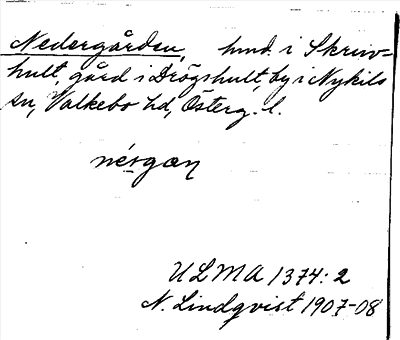 Nedergården, hmd. i Skruv-
hult, gård i Drögshult, by i Nykils
sn, Valkebo hd, Österg. l.
nérgæn
ULMA 1374:2
N. Lindqvist 1907-08